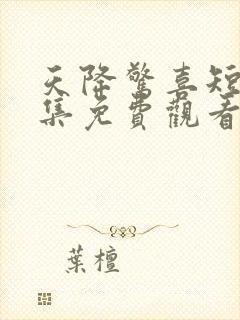 天降驚喜短
集免費觀看
葉檀